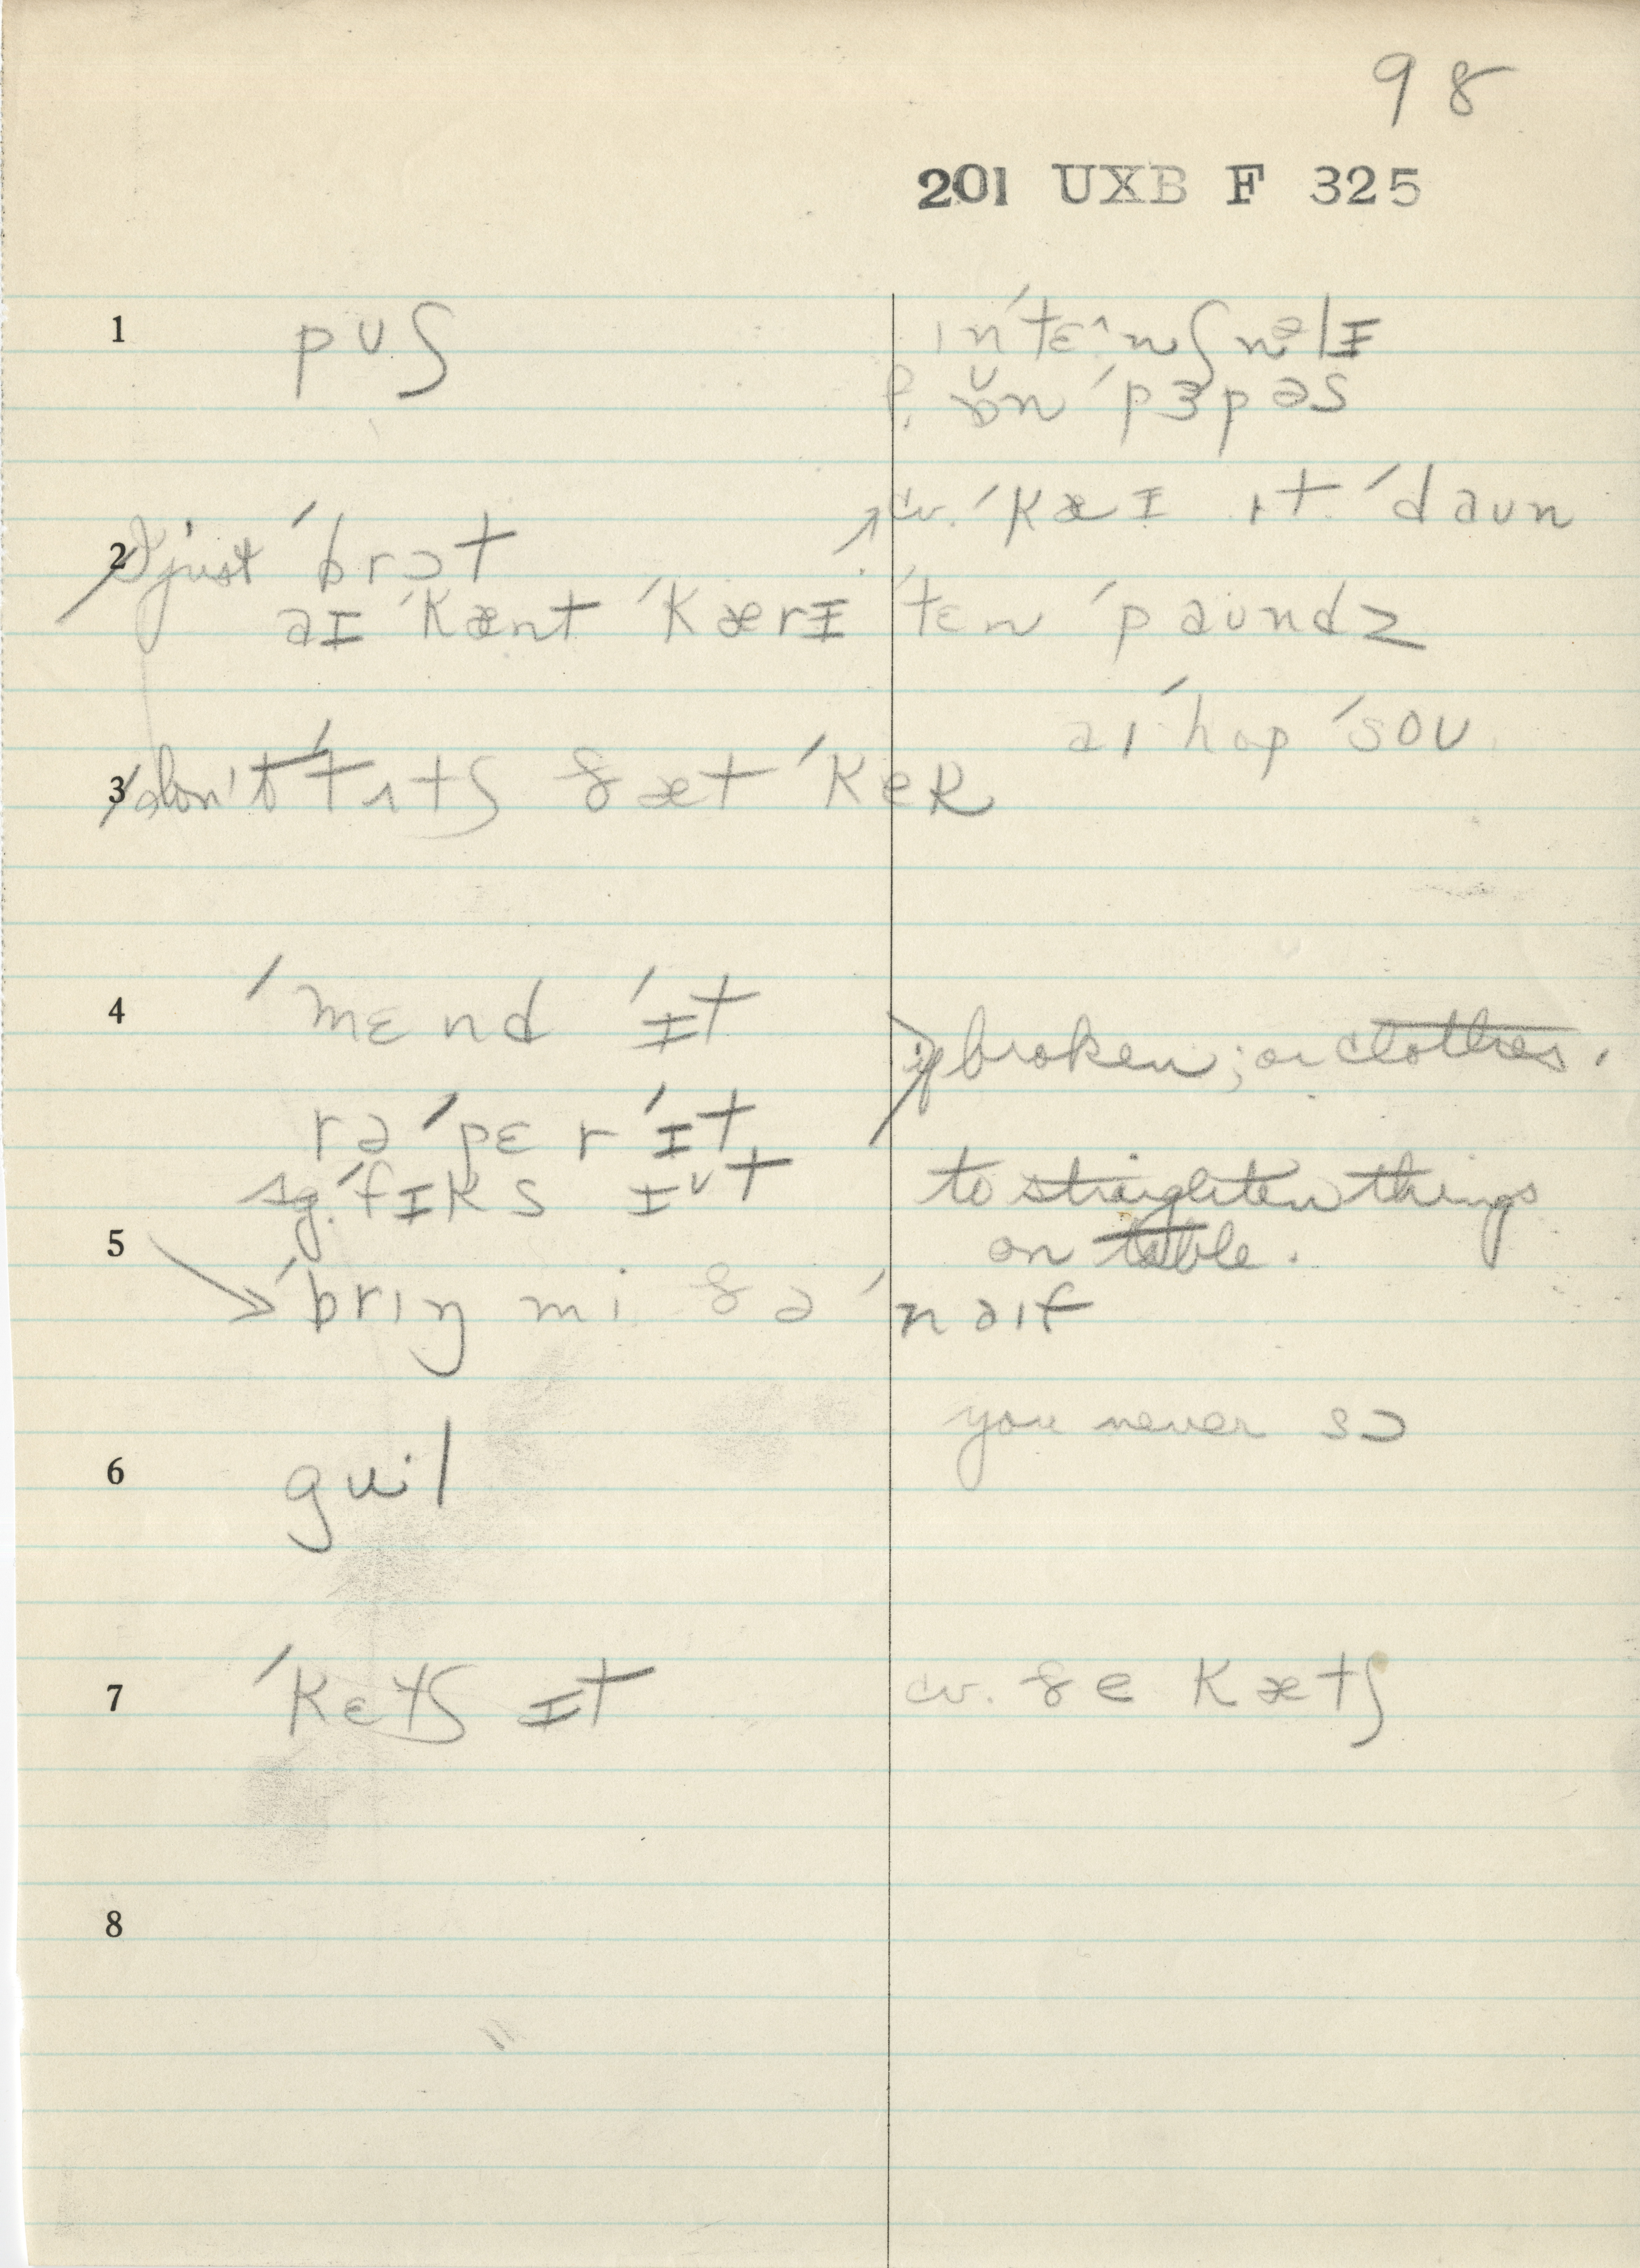 98
201 UXB F 325
1 pʊʃ
ɪn ˈtɛ^nʃnəlɪ
ɒ̆n ˈpɜpəs
cv. ˈkæɪ ɪt ˈdaʊn
2 I just ˈbrɔt
aɪ ˈkænt ˈkærɪ ˈtɛn ˈpaʊndz
aɪ ˈhop ˈsoʊ
3 don't ˈtʌtʃ ðæt ˈkek
4 ˈmɛnd ˈɪt
if broken; or clothes.
rəˈpɛr ˈɪt
sg. ˈfɪks ɪᵛt
to straighten things
5 on table.
ˈbrɪŋ mi ðə ˈnaɪf
you never sɔ
6 guil
7 ˈkɛtʃ ɪt cv. ðe kætʃ
8